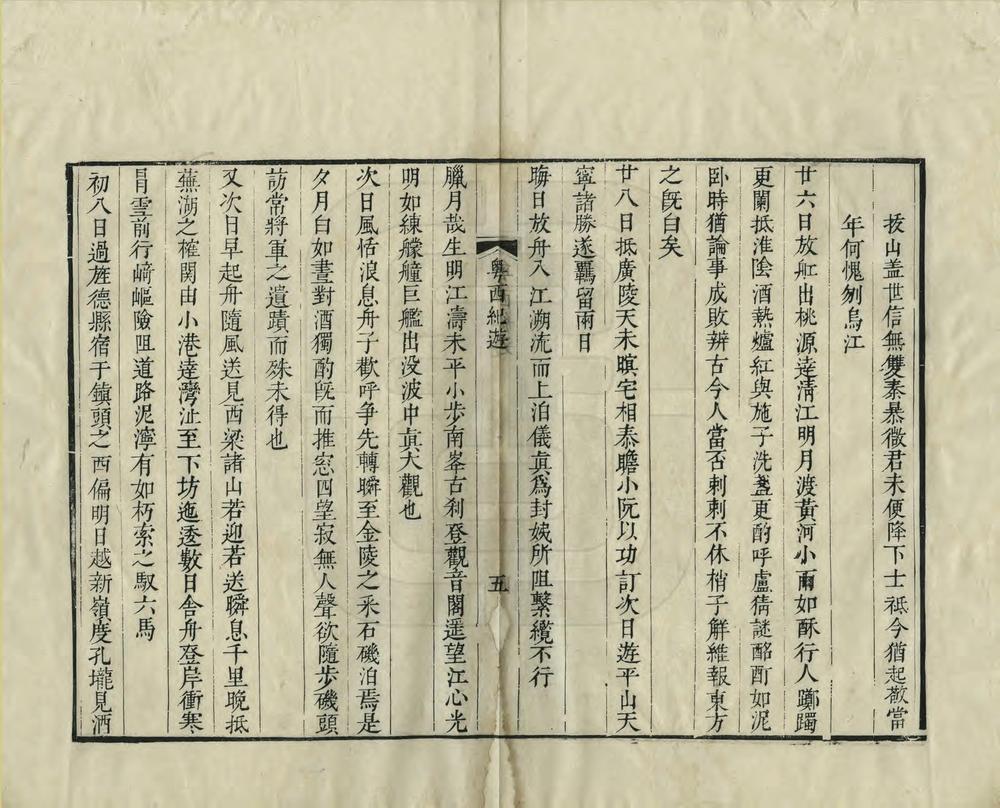 拔山盖世信無雙秦暴徵君未便降下士祇今猶起敬當
年何愧刎烏江
廿六日放舡出桃源逹淸江明月渡黃河小雨如酥行人躑躅
更闌抵淮隂酒熱爐紅與施子洗盞更酌呼盧猜謎酩酊如泥
卧時猶論事成敗辨古今人當否剌剌不休梢子解維報東方
之旣白矣
廿八日抵廣陵天未暝宅相泰瞻小阮以功訂次日遊平山天
寧諸勝遂羈留兩日
晦日放舟入江溯流而上泊儀眞爲封姨所阻繫纜不行
粤西紀遊
五
臘月哉生明江濤未平小步南峯古刹登觀音閣遥望江心光
明如練艨艟巨艦出没波中眞大觀也
次日風恬浪息舟子歡呼爭先轉瞬至金陵之采石磯泊焉是
夕月白如晝對酒獨酌旣而推窓四望寂無人聲欲隨步磯頭
訪常將軍之遺蹟而殊未得也
又次日早起舟隨風送見西梁諸山若迎若送瞬息千里晚抵
蕪湖之榷関由小港逹灣沚至下坊迤逶數日舎舟登岸衝寒
冐雪前行﨑嶇險阻道路泥濘有如朽索之馭六馬
初八日過旌德縣宿于鎭頭之西偏明日越新嶺度孔壠見酒